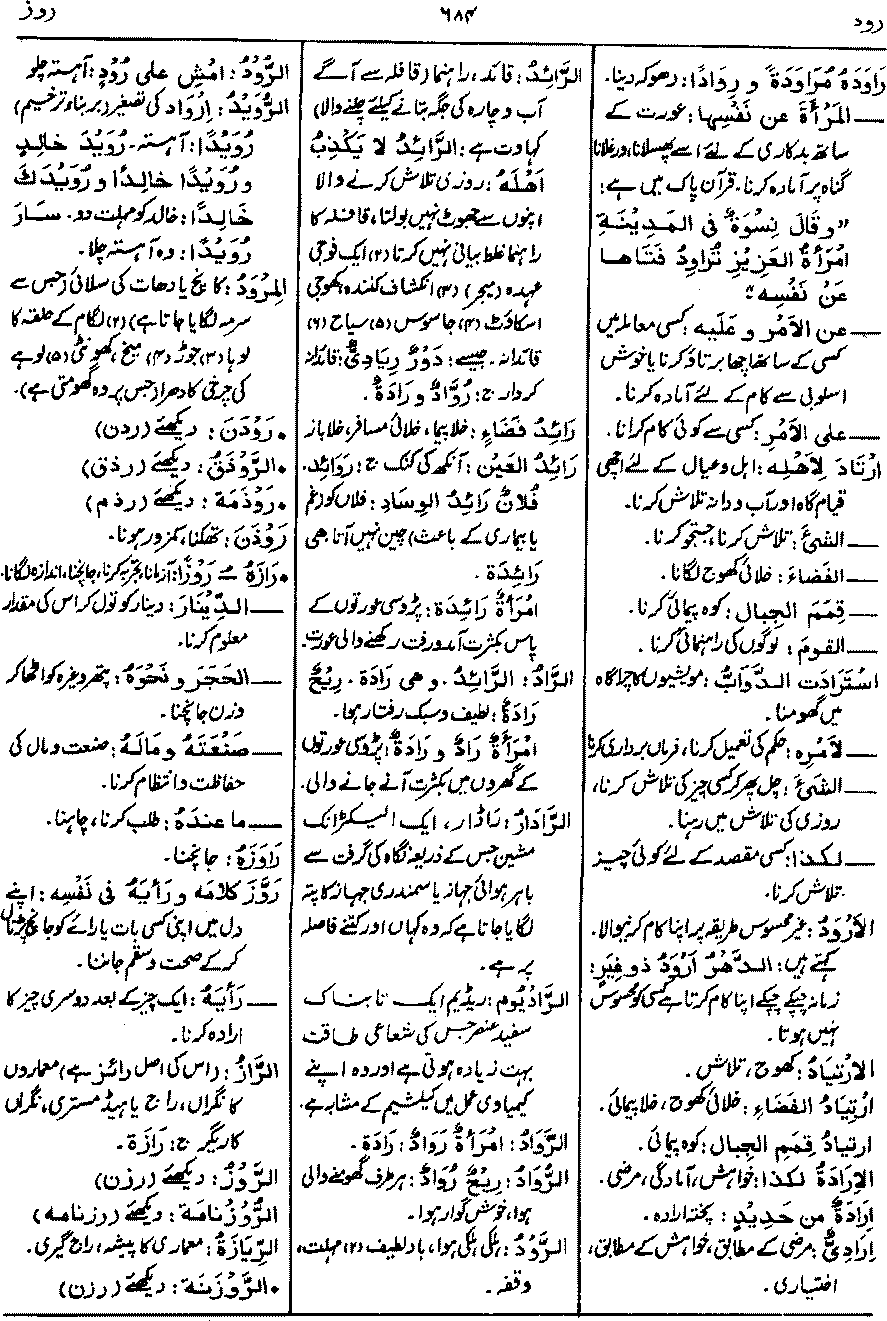 رود
۶۸۴
روز
رَاوَدَهُ مُرَاوَدَةً و رِوَادًا: دھوکہ دینا۔
— المَرْأَةَ عن نَفْسِها: عورت کے
ساتھ بدکاری کے لئے اسے پھسلانا، ورغلانا
گناہ پر آمادہ کرنا۔ قرآن پاک میں ہے:
”وقَالَ نِسْوَةٌ فى المَدِينَةِ
امْرَأَةُ العَزِيزِ تُرَاوِدُ فَتَاهَا
عَنْ نَفْسِه“
— عن الأمْرِ و عَلَيه: کسی معاملہ میں
کسی کے ساتھ اچھا برتاؤ کرنا یا خوش
اسلوبی سے کام کے لئے آمادہ کرنا۔
— على الأمْرِ: کسی سے کوئی کام کرانا۔
ارْتَادَ لِأَهْلِه: اہل و عیال کے لئے اچھی
قیام گاہ اور آب و دانہ تلاش کرنا۔
— الشئَ: تلاش کرنا، جستجو کرنا۔
— الفَضَاءَ: خلائی کھوج لگانا۔
— قِمَمَ الجِبال: کوہ پیمائی کرنا۔
— القومَ: لوگوں کی راہنمائی کرنا۔
اسْتَرَادَت الدَّوَابُّ: مویشیوں کا چراگاہ
میں گھومنا۔
— لأَمْرِه: حکم کی تعمیل کرنا، فرماں برداری کرنا
— الشئَ: چل پھر کر کسی چیز کی تلاش کرنا،
روزی کی تلاش میں رہنا۔
— لكذا: کسی مقصد کے لئے کوئی چیز
تلاش کرنا۔
الأَرْوَدُ: غیر محسوس طریقہ پر اپنا کام کرنیوالا۔
کہتے ہیں: الدَّهْرُ أَرْوَدُ ذو غِيَرٍ:
زمانہ چپکے چپکے اپنا کام کرتا ہے کسی کو محسوس
نہیں ہوتا۔
الارْتِيَادُ: کھوج، تلاش۔
ارْتِيَادُ الفَضَاءِ: خلائی کھوج، خلا پیمائی۔
ارتيادُ قِمَمِ الجِبالِ: کوہ پیمائی۔
الإرَادَةُ لكذا: خواہش، آمادگی، مرضی۔
إِرَادَةٌ من حَدِيدٍ: پختہ ارادہ۔
إِرَادِىٌّ: مرضی کے مطابق، خواہش کے مطابق،
اختیاری۔
الرَّائِدُ: قائد، راہنما (قافلہ سے آگے
آب و چارہ کی جگہ بتانے کیلئے چلنے والا)
کہاوت ہے: الرَّائِدُ لا يَكْذِبُ
أَهْلَهُ: روزی تلاش کرنے والا
اپنوں سے جھوٹ نہیں بولتا، قافلہ کا
راہنما غلط بیانی نہیں کرتا (۲) ایک فوجی
عہدہ (میجر) (۳) انکشاف کنندہ کھوجی
اسکاؤٹ (۴) جاسوس (۵) سیاح (۶)
قائدانہ۔ جیسے: دَوْرٌ رِيَادِىٌّ: قائدانہ
کردار ج: رُوَّادٌ و رَادَةٌ۔
رَائِدُ فَضَاءٍ: خلا پیما، خلائی مسافر، خلا باز
رَائِدُ العَيْنِ: آنکھ کی کنک ج: رَوَائِدُ۔
فُلانٌ رَائِدُ الوِسادِ: فلاں کو (غم
یا بیماری کے باعث) چین نہیں آتا ھی
رَائِدَة۔
امْرَأَةٌ رَائِدَة: پڑوسی عورتوں کے
پاس بکثرت آمد ورفت رکھنے والی عورت۔
الرَّادُ: الرَّائِدُ۔ وهى رَادَة۔ رِيْحٌ
رَادَةٌ: لطیف و سبک رفتار ہوا۔
امْرَأَةٌ رَادٌ و رَادَةٌ: پڑوسی عورتوں
کے گھروں میں بکثرت آنے جانے والی۔
الرَّادَارُ: راڈار، ایک الیکٹرانک
مشین جس کے ذریعہ نگاہ کی گرفت سے
باہر ہوائی جہاز یا سمندری جہاز کا پتہ
لگایا جاتا ہے کہ وہ کہاں اور کتنے فاصلہ
پر ہے۔
الرَّادْيُوم: ریڈیم ایک تابناک
سفید عنصر جس کی شعاعی طاقت
بہت زیادہ ہوتی ہے اور وہ اپنے
کیمیاوی عمل میں کیلشیم کے مشابہ ہے۔
الرَّوَادُ: امْرَأَةٌ رَوَادٌ: رَادَة۔
الرُّوَادُ: رِيْحٌ رُوَادٌ: ہر طرف گھومنے والی
ہوا، خوش گوار ہوا۔
الرَّوْدُ: ہلکی ہلکی ہوا، باد لطیف (۲) مہلت،
وقفہ۔
الرُّوْدُ: امْشِ على رُودٍ: آہستہ چلو
الرُّوَيْدُ: إِرْوَاد کی تصغیر (بر بناء ترخیم)
رُوَيْدًا: آہستہ۔ رُوَيْدَ خالِدٍ
و رُوَيْدًا خالِدًا و رُوَيْدَكَ
خَالِدًا: خالد کو مہلت دو۔ سَارَ
رُوَيْدًا: وہ آہستہ چلا۔
المِرْوَدُ: کانچ یا دھات کی سلائی (جس سے
سرمہ لگایا جاتا ہے) (۲) لگام کے حلقہ کا
لوہا (۳) جوڑ (۴) میخ، کھونٹی (۵) لوہے
کی چرخی کا دھرا (جس پر وہ گھومتی ہے)۔
• رَوْدَنَ: دیکھئے (ردن)
• الرَّوْذَقُ: دیکھئے (رذق)
• رَوْذَمَة: دیکھئے (رذم)
رَوْذَنَ: تھکنا، کمزور ہونا۔
• رَازَهُ ـُ رَوْزًا: آزمانا، تجربہ کرنا، جانچنا، اندازہ لگانا۔
— الدِّيْنَارَ: دینار کو تول کر اس کی مقدار
معلوم کرنا۔
— الحَجَرَ و نَحْوَهُ: پتھر وغیرہ کو اٹھا کر
وزن جانچنا۔
— صَنْعَتَهُ و مَالَهُ: صنعت و مال کی
حفاظت و انتظام کرنا۔
— ما عندَهُ: طلب کرنا، چاہنا۔
رَاوَزَهُ: جانچنا۔
رَوَّزَ كلامَه و رَأيَهُ فى نَفْسِه: اپنے
دل میں اپنی کسی بات یا رائے کو جانچ پڑتال
کر کے صحت و سقم جاننا۔
— رَأْيَهُ: ایک چیز کے بعد دوسری چیز کا
ارادہ کرنا۔
الرَّازُ: (اس کی اصل رائز ہے) معماروں
کا نگراں، راج یا ہیڈ مستری، نگراں
کاریگر ج: رَازَة۔
الرَّوْزُ: دیکھئے (رزن)
الرُّوْزْنَامَة: دیکھئے (رزنامه)
الرِّيَازَةُ: معماری کا پیشہ، راج گیری۔
• الرَّوْزَنَة: دیکھئے (رزن)